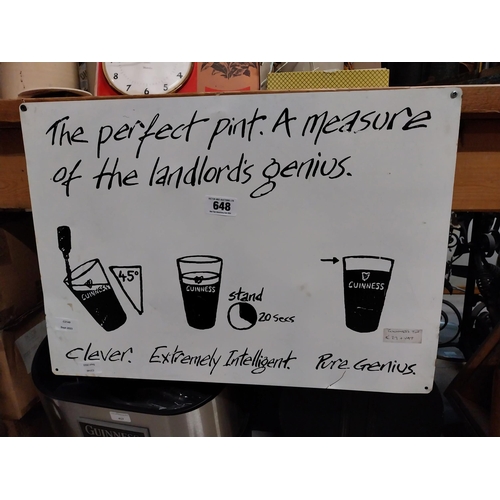 The perfect pint. A measure
of the landlord's genius.
648
45°
GUINNESS
GUINNESS
stand
20 secs
GUINNESS
Clever. Extremely Intelligent. Pure Genius.
GUINNESS